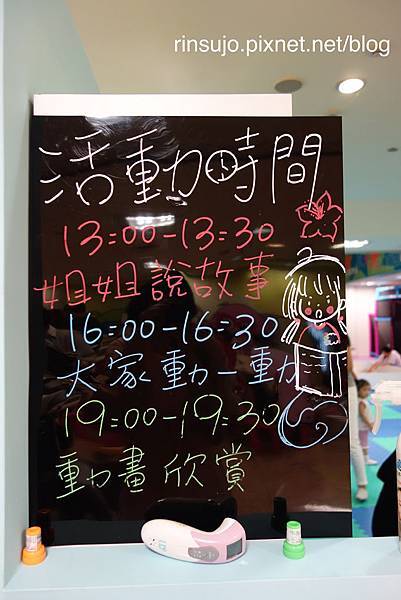 rinsujo.pixnet.net/blog
活動時間
13:00-13:30
姐姐說故事
16:00-16:30
大家動一動
19:00-19:30
動畫欣賞